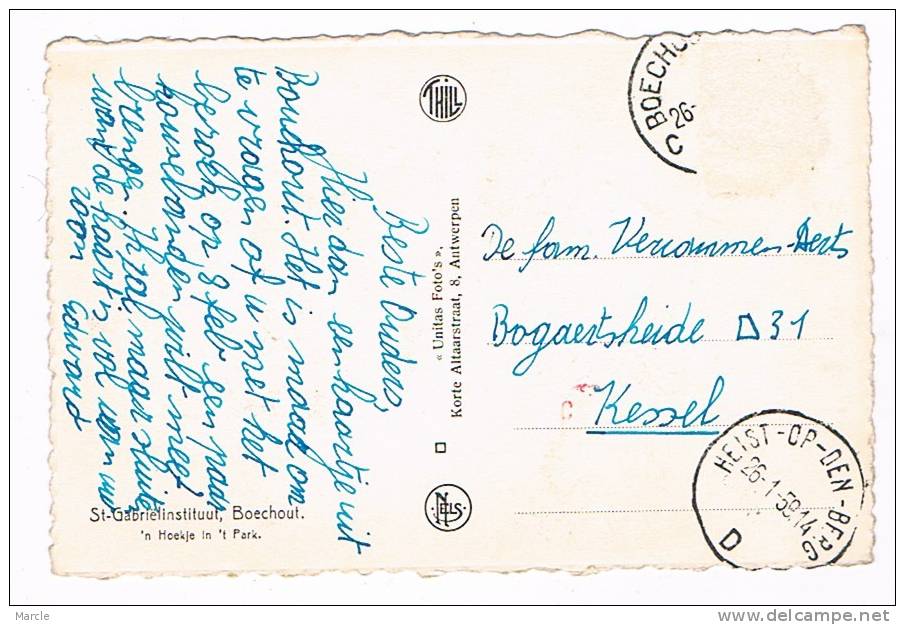 Beste Ouders,
Hier dan een kaartje uit
Bouchout. Het is maar om
te vragen of u met het
bezoek op 8 feb een paar
kousebanden wilt mee
brengen. Ik zal maar sluiten
want de kaart is vol van uw
zoon
Edward
St-Gabriëlinstituut, Boechout.
'n Hoekje in 't Park.
THILL
« Unitas Foto's ».
Korte Altaarstraat, 8, Antwerpen
NELS
BOECHOU
26-
C
De fam. Verammen-Aerts
Bogaertsheide D 31
Kessel
HEIST-OP-DEN-BERG
26-1-59 14
D
Marcle
http://www.delcampe.net